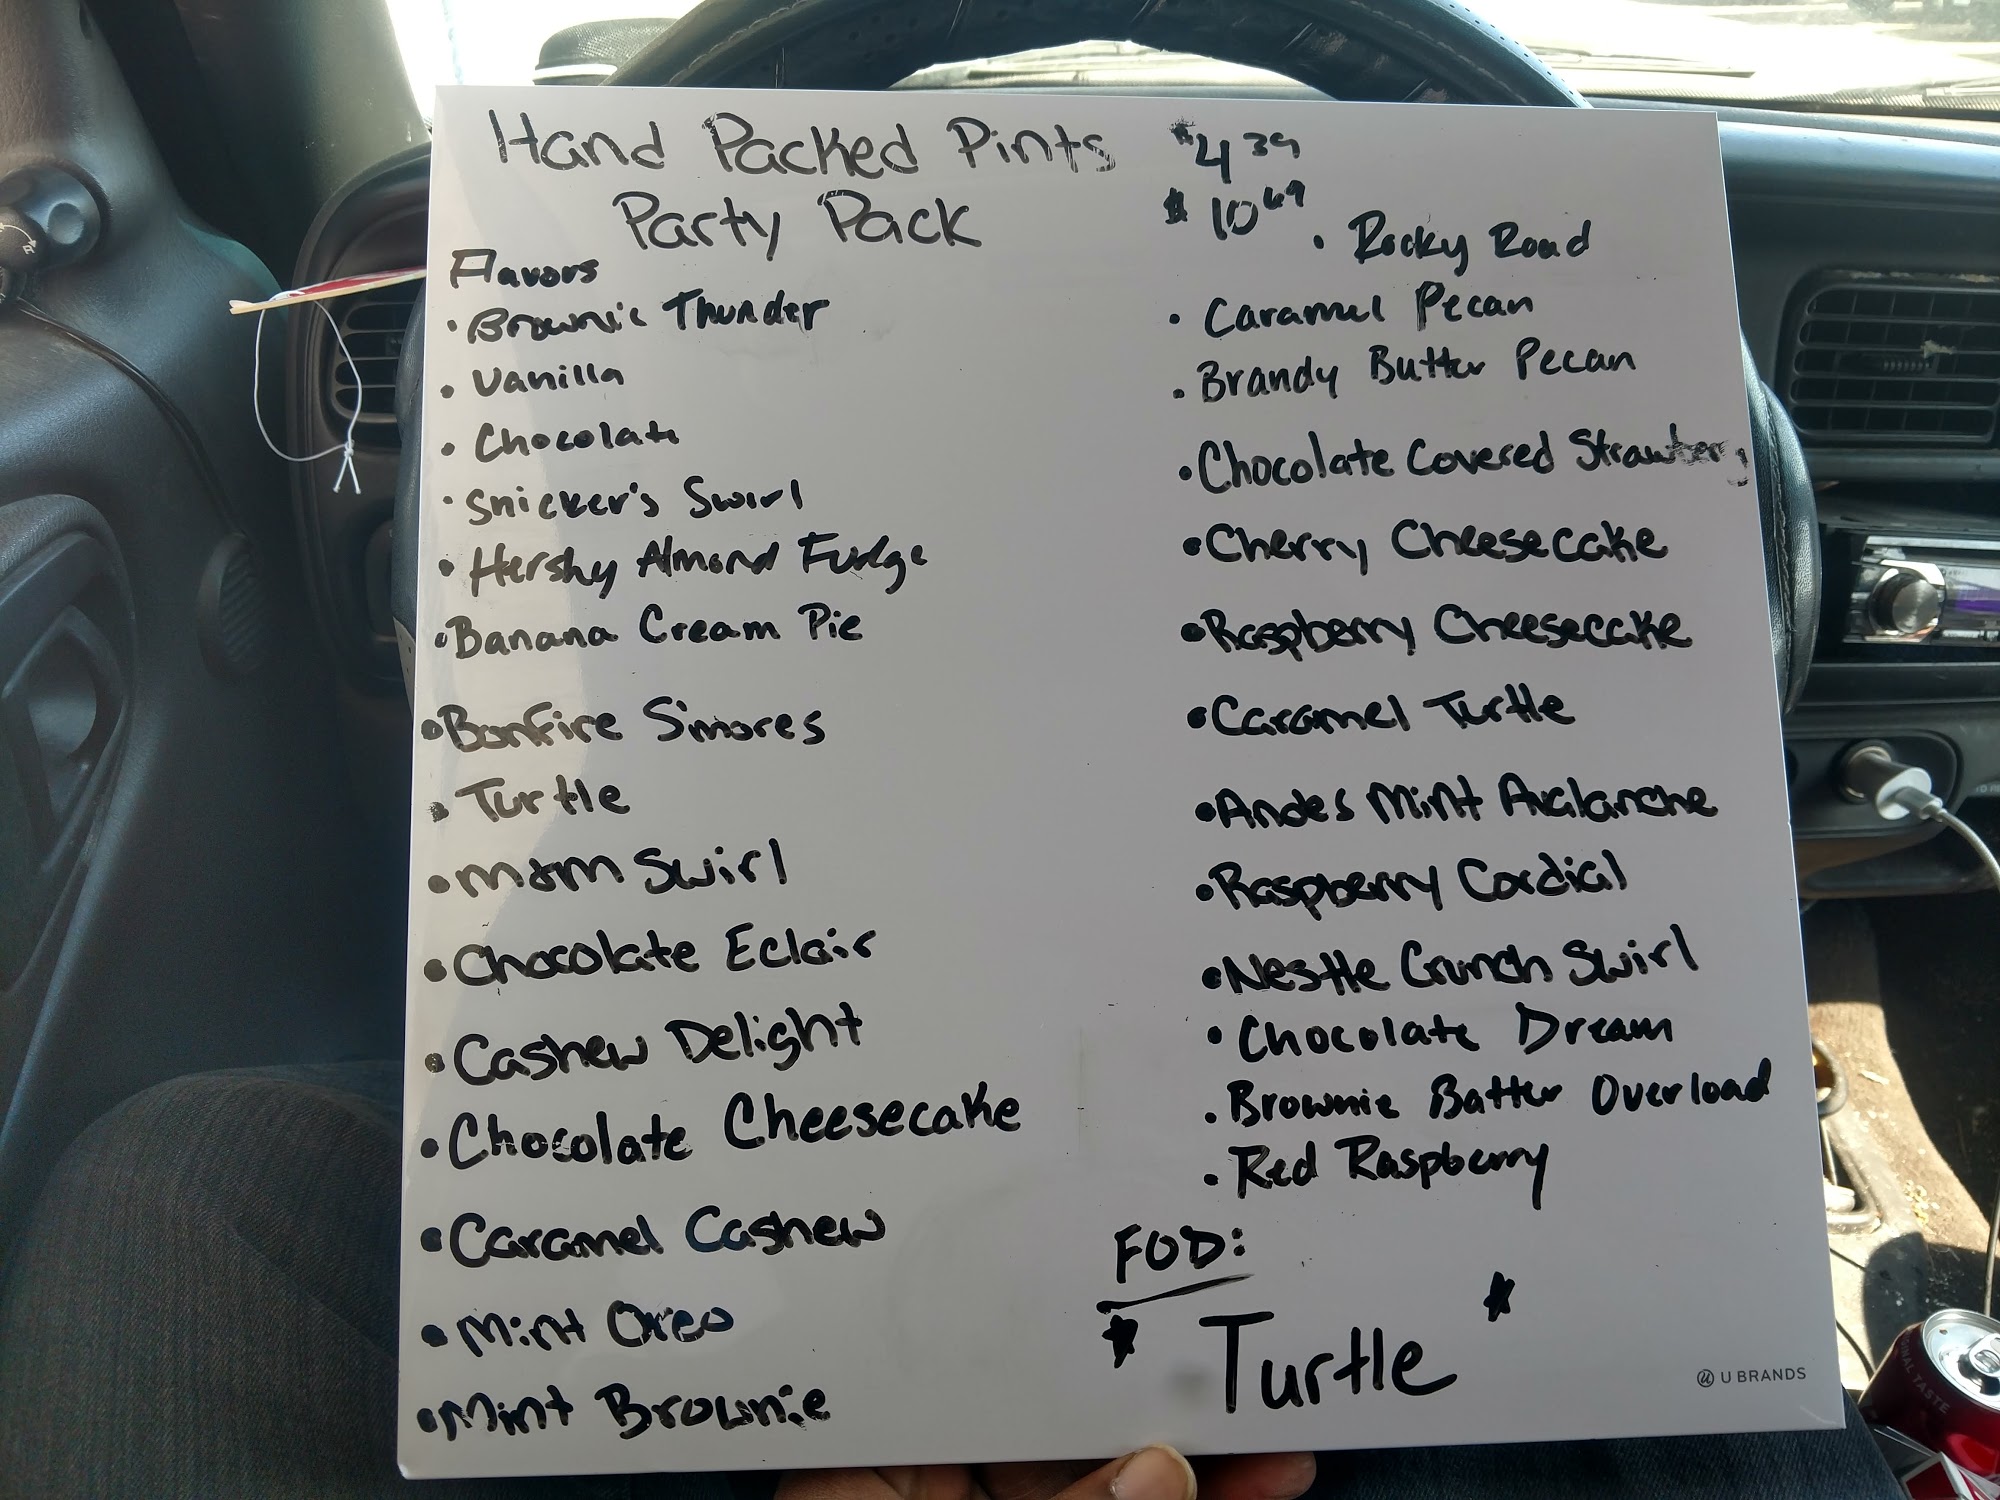 Hand Packed Pints $4.39
Party Pack $10.69
Flavors
• Brownie Thunder
• Vanilla
• Chocolate
• Snicker's Swirl
• Hershy Almond Fudge
• Banana Cream Pie
• Bonfire S'mores
• Turtle
• M&M Swirl
• Chocolate Eclair
• Cashew Delight
• Chocolate Cheesecake
• Caramel Cashew
• Mint Oreo
• Mint Brownie
• Rocky Road
• Caramel Pecan
• Brandy Butter Pecan
• Chocolate Covered Strawbery
• Cherry Cheesecake
• Raspberry Cheesecake
• Caramel Turtle
• Andes Mint Avalanche
• Raspberry Cordial
• Nestle Crunch Swirl
• Chocolate Dream
• Brownie Batter Overload
• Red Raspberry
FOD:
* Turtle *
U BRANDS